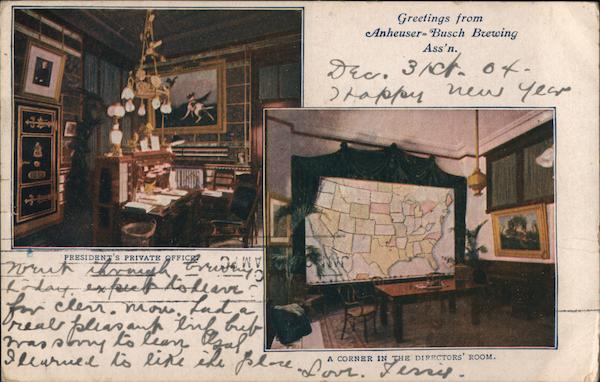 Greetings from
Anheuser-Busch Brewing
Ass'n.
Dec. 31st - 04 -
Happy New Year
PRESIDENT'S PRIVATE OFFICE.
A CORNER IN THE DIRECTORS' ROOM.
Went through brewery
today expect to leave
for Mon. had a
real pleasant trip but
was sorry to leave
I learned to like the place
Love. Jessie.